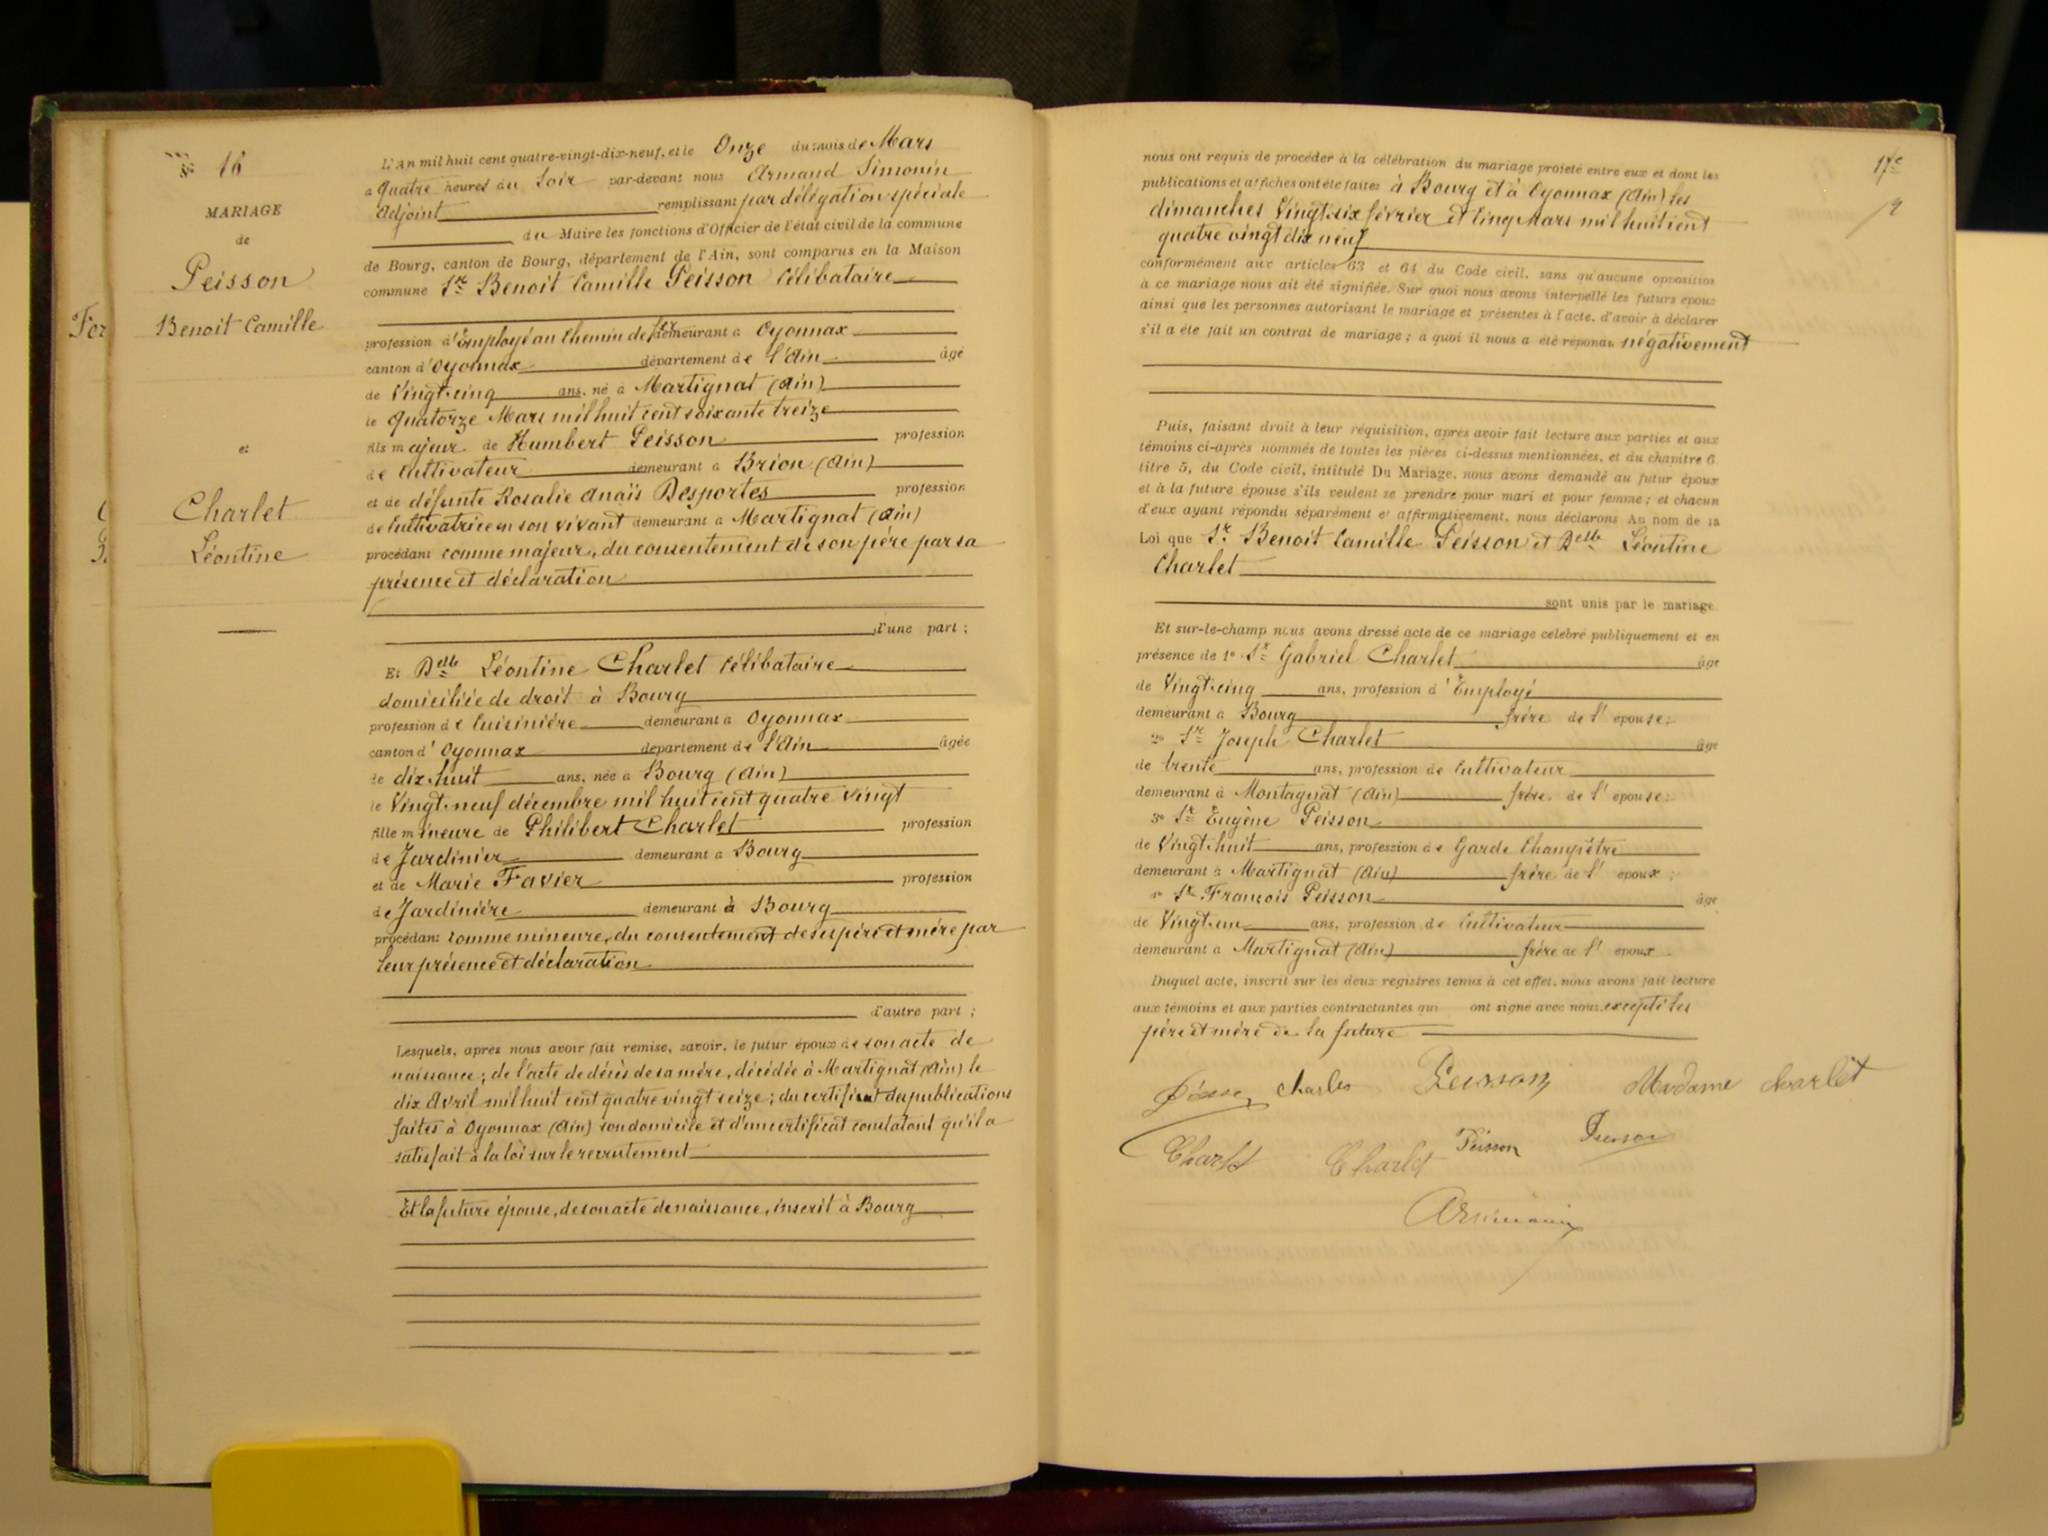 N° 16
MARIAGE
de
Peisson
Benoit Camille
et
Charlet
Léontine
For
L'An mil huit cent quatre-vingt-dix-neuf, et le Onze du mois de Mars
a Quatre heures du Soir par-devant nous Armand Simonin
Adjoint remplissant par délégation spéciale
du Maire les fonctions d'Officier de l'état civil de la commune
de Bourg, canton de Bourg, département de l'Ain, sont comparus en la Maison
commune Sr Benoit Camille Peisson Célibataire
profession d'Employé au Chemin de fer demeurant à Oyonnax
canton d'Oyonnax département de l'Ain âgé
de Vingt-cinq ans, né à Martignat (Ain)
le Quatorze Mars mil huit cent soixante treize
fils majeur de Humbert Peisson profession
de Cultivateur demeurant à Brion (Ain)
et de défunte Rosalie Anaïs Desportes profession
de Cultivatrice en son vivant demeurant à Martignat (Ain)
procédant comme majeur, du consentement de son père par sa
présence et déclaration
d'une part ;
Et Delle Léontine Charlet Célibataire
domiciliée de droit à Bourg
profession de Cuisinière demeurant à Oyonnax
canton d'Oyonnax département de l'Ain âgée
de dix-huit ans, née à Bourg (Ain)
le Vingt-neuf décembre mil huit cent quatre vingt
fille mineure de Philibert Charlet profession
de Jardinier demeurant à Bourg
et de Marie Favier profession
de Jardinière demeurant à Bourg
procédant comme mineure, du consentement de ses père et mère par
leur présence et déclaration
d'autre part ;
Lesquels, après nous avoir fait remise, savoir, le futur époux de son acte de
naissance ; de l'acte de décès de sa mère, décédée à Martignat (Ain) le
dix Avril mil huit cent quatre vingt seize ; du certificat des publications
faites à Oyonnax (Ain) son domicile et d'un certificat constatant qu'il a
satisfait à la loi sur le recrutement
Et la future épouse, de son acte de naissance, inscrit à Bourg
17e
nous ont requis de procéder à la célébration du mariage projeté entre eux et dont les
publications et affiches ont été faites à Bourg et à Oyonnax (Ain) les
dimanches Vingt-six février et Cinq Mars mil huit cent
quatre vingt dix neuf
conformément aux articles 63 et 64 du Code civil, sans qu'aucune opposition
à ce mariage nous ait été signifiée. Sur quoi nous avons interpellé les futurs époux
ainsi que les personnes autorisant le mariage et présentes à l'acte, d'avoir à déclarer
s'il a été fait un contrat de mariage ; a quoi il nous a été répondu négativement
Puis, faisant droit à leur réquisition, après avoir fait lecture aux parties et aux
témoins ci-après nommés de toutes les pièces ci-dessus mentionnées, et du chapitre 6
titre 5, du Code civil, intitulé Du Mariage, nous avons demandé au futur époux
et à la future épouse s'ils veulent se prendre pour mari et pour femme ; et chacun
d'eux ayant répondu séparément et affirmativement, nous déclarons Au nom de la
Loi que Sr Benoit Camille Peisson et Delle Léontine
Charlet
sont unis par le mariage.
Et sur-le-champ nous avons dressé acte de ce mariage célébré publiquement et en
présence de 1° Sr Gabriel Charlet âgé
de Vingt-cinq ans, profession d'Employé
demeurant à Bourg frère de l'épouse ;
2° Sr Joseph Charlet âgé
de trente ans, profession de Cultivateur
demeurant à Montagnat (Ain) frère de l'épouse ;
3° Sr Eugène Peisson
de Vingt-huit ans, profession de Garde Champêtre
demeurant à Martignat (Ain) frère de l'époux ;
4° Sr François Peisson âgé
de Vingt-un ans, profession de Cultivateur
demeurant à Martignat (Ain) frère de l'époux.
Duquel acte, inscrit sur les deux registres tenus à cet effet, nous avons fait lecture
aux témoins et aux parties contractantes qui ont signé avec nous excepté les
père et mère de la future
Charles Peisson Madame Charlet
Charlet Charlet Peisson Peisson
ASimonin